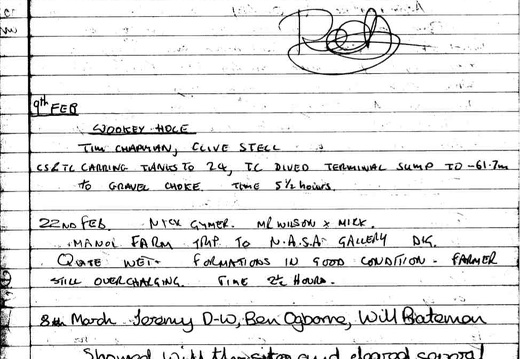 9th FEB
WOOKEY HOLE
TIM CHAPMAN, CLIVE STELL
CS & TC CARRING TANKS TO 24, TC DIVED TERMINAL SUMP TO -61.7m
to GRAVEL CHOKE. TIME 5½ hours.
22ND FEB. NICK GYMER. MR WILSON & MICK.
MANOR FARM TRIP TO N.A.S.A. GALLERY DIG.
QUITE WET. FORMATIONS IN GOOD CONDITION. FARMER
STILL OVERCHARGING. TIME 2½ HOURS.
8th March Jeremy D-W, Ben Ogborne, Will Bateman
Showed Will the sites and cleared several